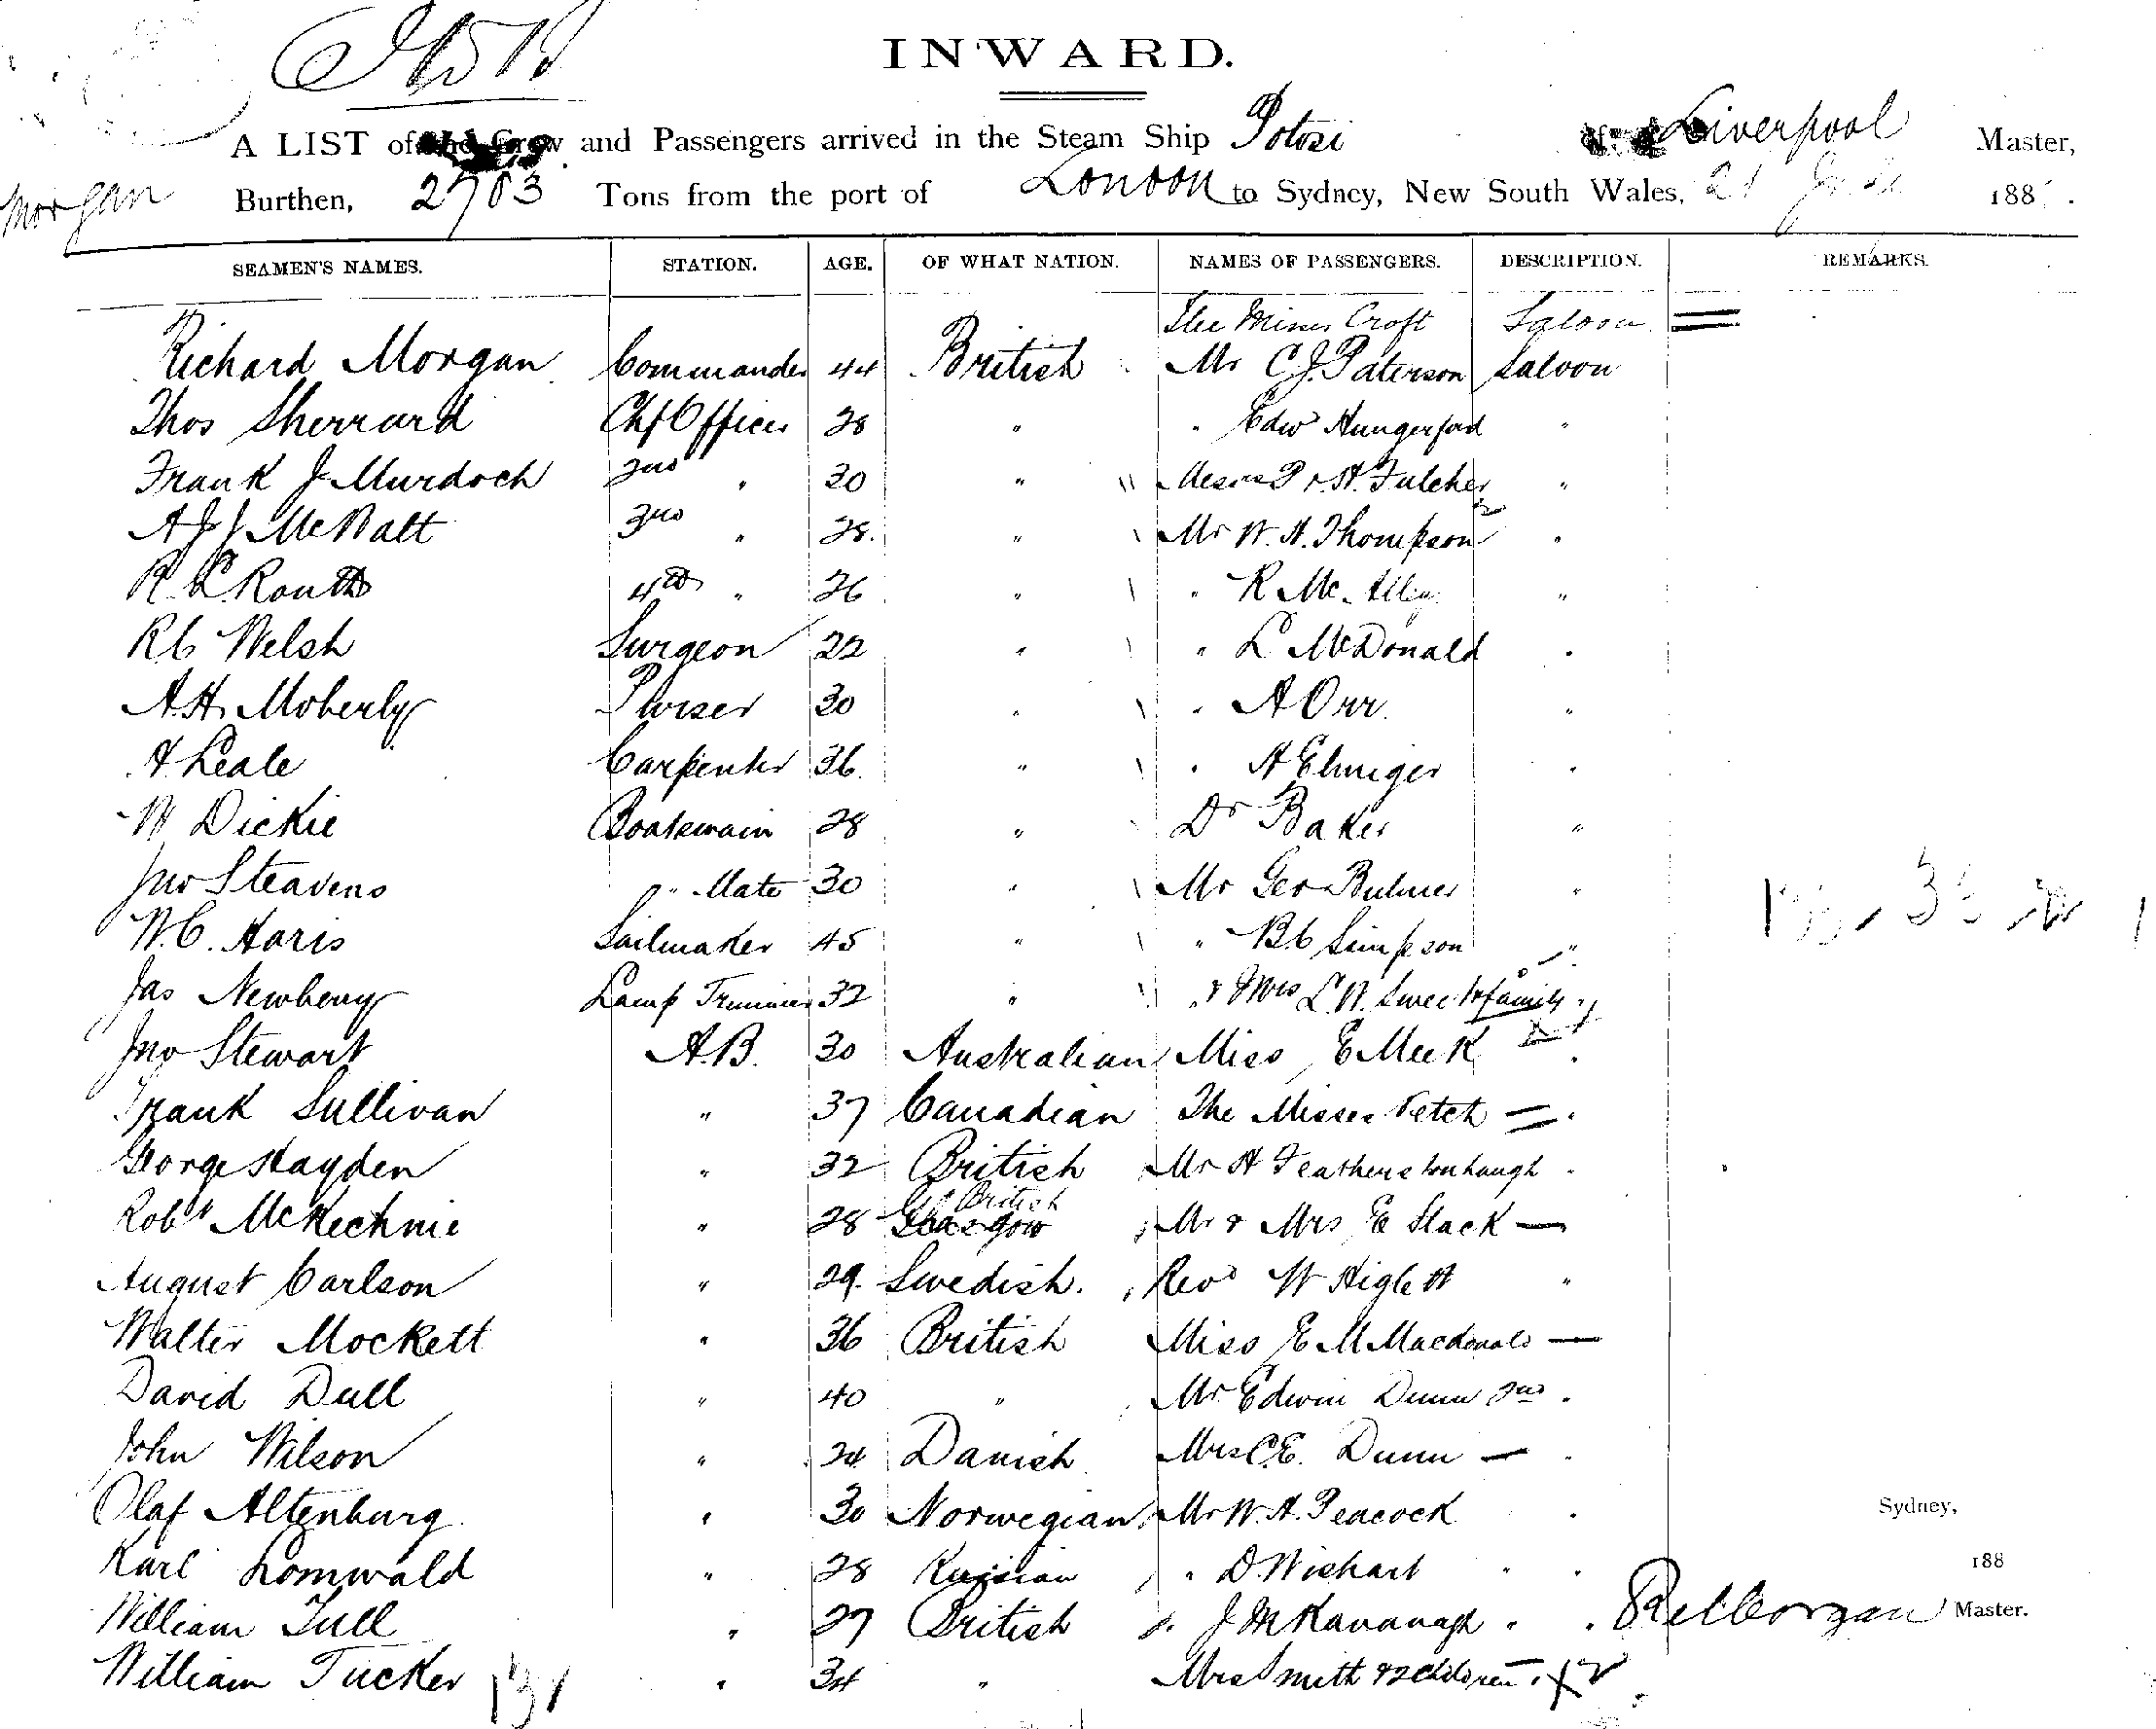 INWARD.
A LIST of the Crew and Passengers arrived in the Steam Ship Potosi of Liverpool Master,
Morgan Burthen, 2703 Tons from the port of London to Sydney, New South Wales, 21 188 .
SEAMEN'S NAMES. STATION. AGE. OF WHAT NATION. NAMES OF PASSENGERS. DESCRIPTION. REMARKS.
The Misses Croft Saloon
Richard Morgan Commander 44 British Mr C.J. Paterson Saloon
Thos Sherrard Chf Officer 28 " " Edwd Hungerford "
Frank J Murdoch 2nd " 30 " Messrs P & H. Fulcher "
A J J McWatt 3rd " 28. " Mr W. H. Thompson "
R. L. Routh 4th " 26 " " R Mc. "
R C Welsh Surgeon 22 " " L McDonald "
A.H. Moberly Purser 30 " " A Orr. "
A Leale Carpenter 36. " " A Elmiger "
W Dickie Boatswain 28 " Dr Baker "
Jno Steavens " Mate 30 " Mr Geo Bulmer "
W.C. Haris Sailmaker 45 " " B C Simpson "
Jas Newberry Lamp Trimmer 32 " " & Mrs L. W. Sweet & family "
Jno Stewart A.B. 30 Australian Miss E Meek "
Frank Sullivan " 37 Canadian The Misses Vetch "
George Hayden " 32 British Mr H Featherstonhaugh "
British
Robt McKechnie " 28 Glasgow Mr & Mrs E Slack
August Carlson " 29. Swedish. Revd W Higlett "
Walter Mockett " 36 British Miss E M Macdonald
David Dull " 40 " Mr Edwin Dunn Jnr "
John Wilson " 24 Danish Mrs C.E. Dunn "
Olaf Altenburg " 30 Norwegian Mr W. H. Peacock "
Sydney,
Karl Lomwald " 28 Russian " D. Wishart " "
188
William Tull " 27 British " J M Kavanagh " " R Morgan Master.
William Tucker " 34 " Mrs Smith & 2 children "